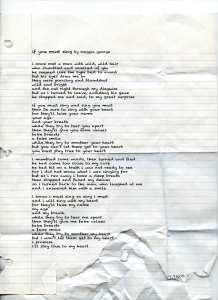 if you must sing by maggie george
i once met a man with wild, wild hair
who stumbled and smelled of gin
he seemed like the type best to avoid
but his eyes drew me in
they were piercing and bloodshot
wild and bright
and the met right through my disguise
but as i turned to leave, avoiding his gaze
he stopped me and said, to my great surprise
if you must sing and sing you must
then be sure to sing with your heart
for they'll take your name
your age
and your breath
while they try to tear you apart
then they'll give you false virtues
take breaths
a fake smile
while they try to another your heart
but you can't let them get to your heart
you must stay true to your heart
i mumbled some words, then turned and fled
he had come too close to my core
he had hit on a truth i was not ready to see
for i did not know what i was singing for
but as i ran away i took a deep breath
then stopped and faced my denial
so i turned back to the man, who laughed at me
and i answered him with a smile
i know i must sing so sing i must
and i will sing with my heart
for they'll take my name
my age
and my breath
while they try to tear me apart
then they'll give me false values
false breasts
a fake smile
while they try to another my heart
but i won't let them get to my heart
i promise
i'll stay true to my heart